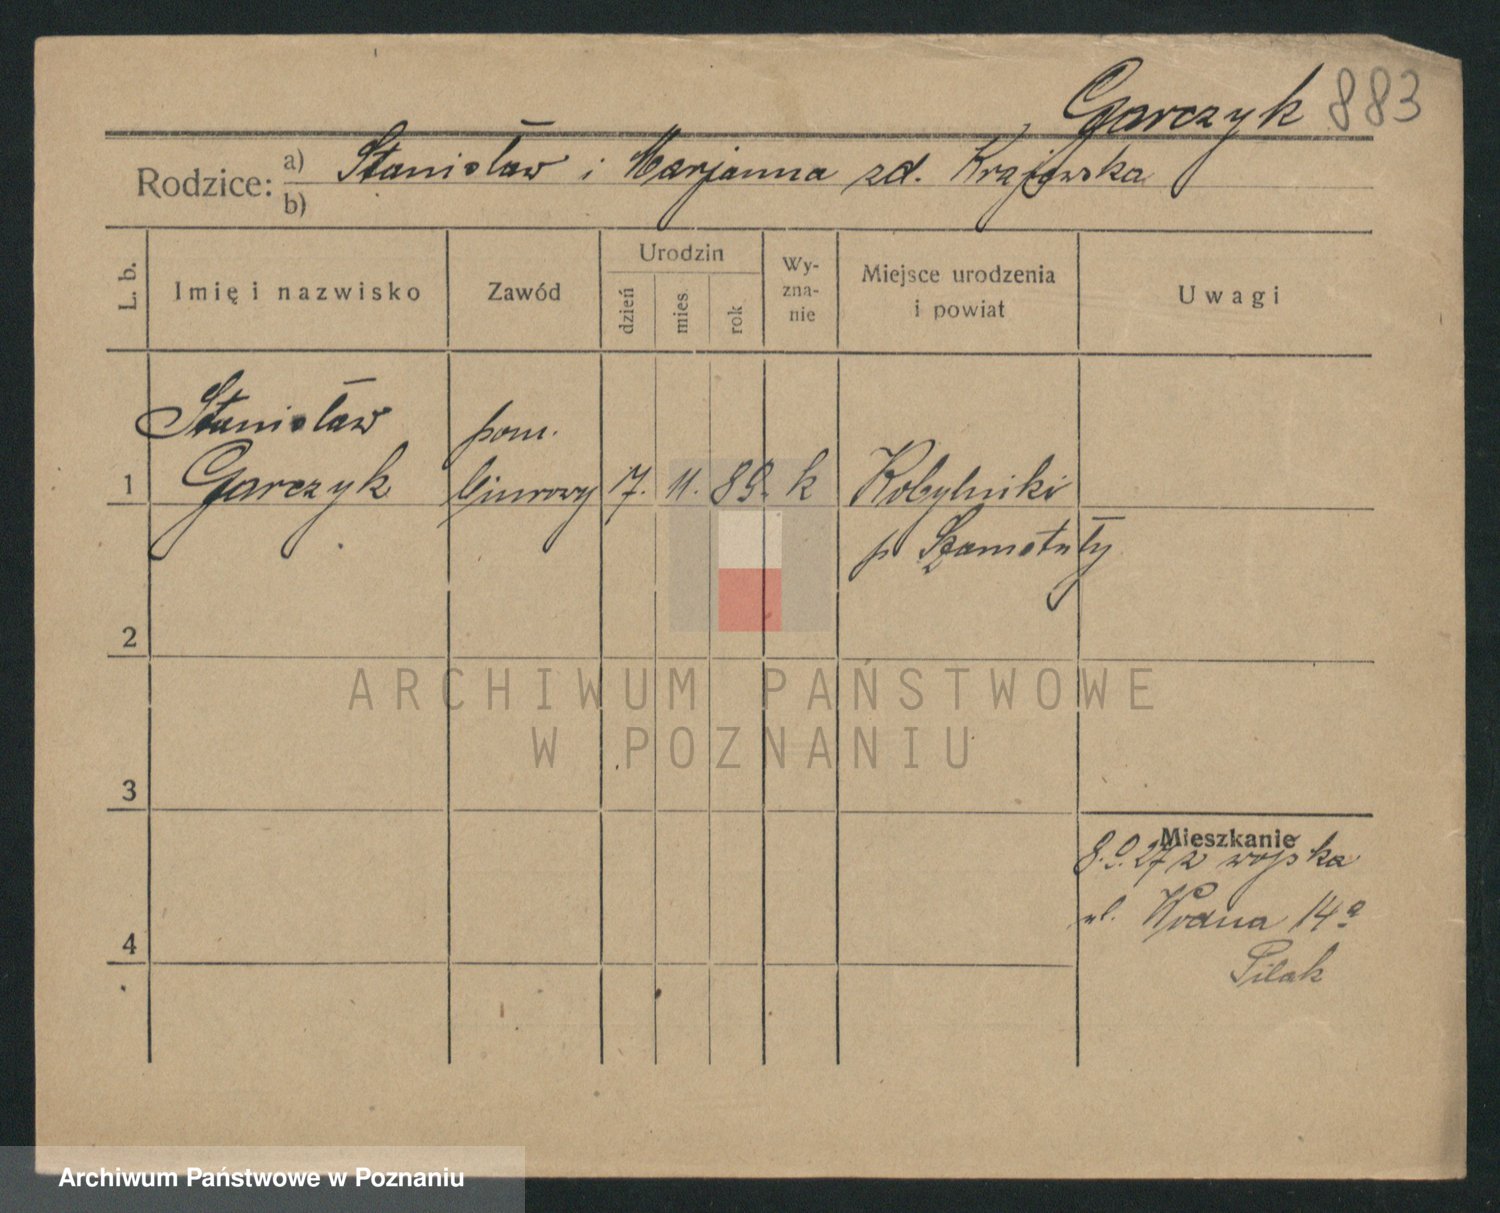 Garczyk 883
Rodzice: a) Stanisław i Marjanna zd. Krajewska
b)
L. b.
Imię i nazwisko
Zawód
Urodzin
dzień
mies
rok
Wy-
zna-
nie
Miejsce urodzenia
i powiat
Uwagi
Stanisław
pom.
1 Garczyk biurowy 17. 11. 89. k Kobylniki
p Szamotuły
2
ARCHIWUM PAŃSTWOWE
W POZNANIU
3
Mieszkanie
27 z wojska
ul. Wodna 14a
Pilak
4
Archiwum Państwowe w Poznaniu